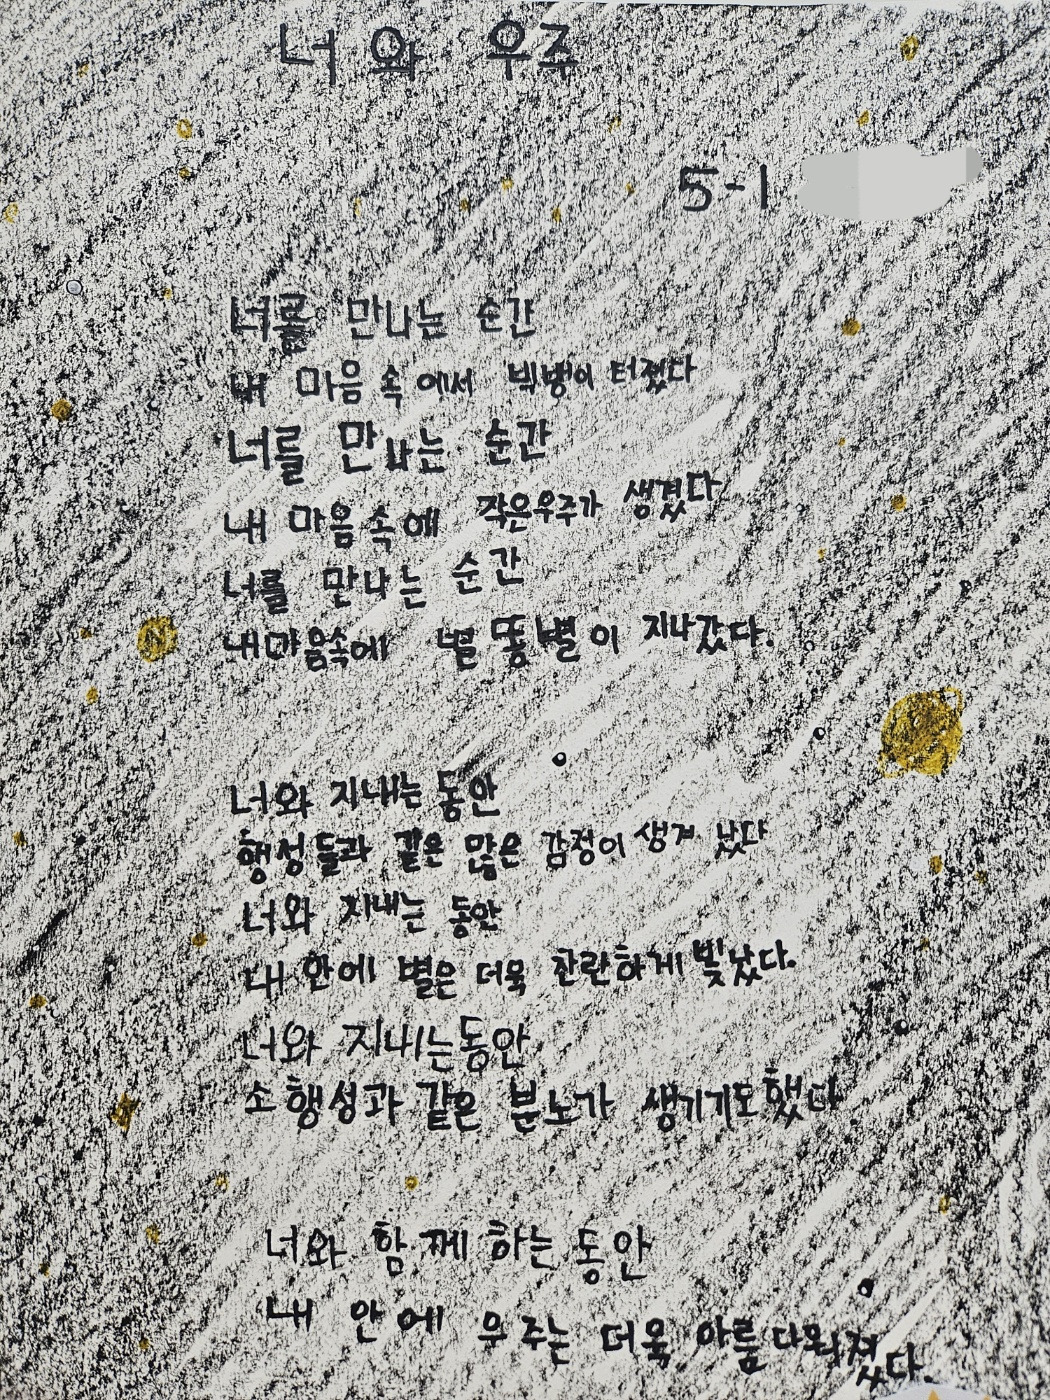 너와 우주
5-1
너를 만나는 순간
내 마음속에서 빅뱅이 터졌다
너를 만나는 순간
내 마음속에 작은우주가 생겼다
너를 만나는 순간
내마음속에 별똥별이 지나갔다.
너와 지내는 동안
행성들과 같은 많은 감정이 생겨 났다
너와 지내는 동안
내 안에 별은 더욱 찬란하게 빛났다.
너와 지내는동안
소행성과 같은 분노가 생기기도했다
너와 함께 하는 동안
내 안에 우주는 더욱 아름다워졌다.